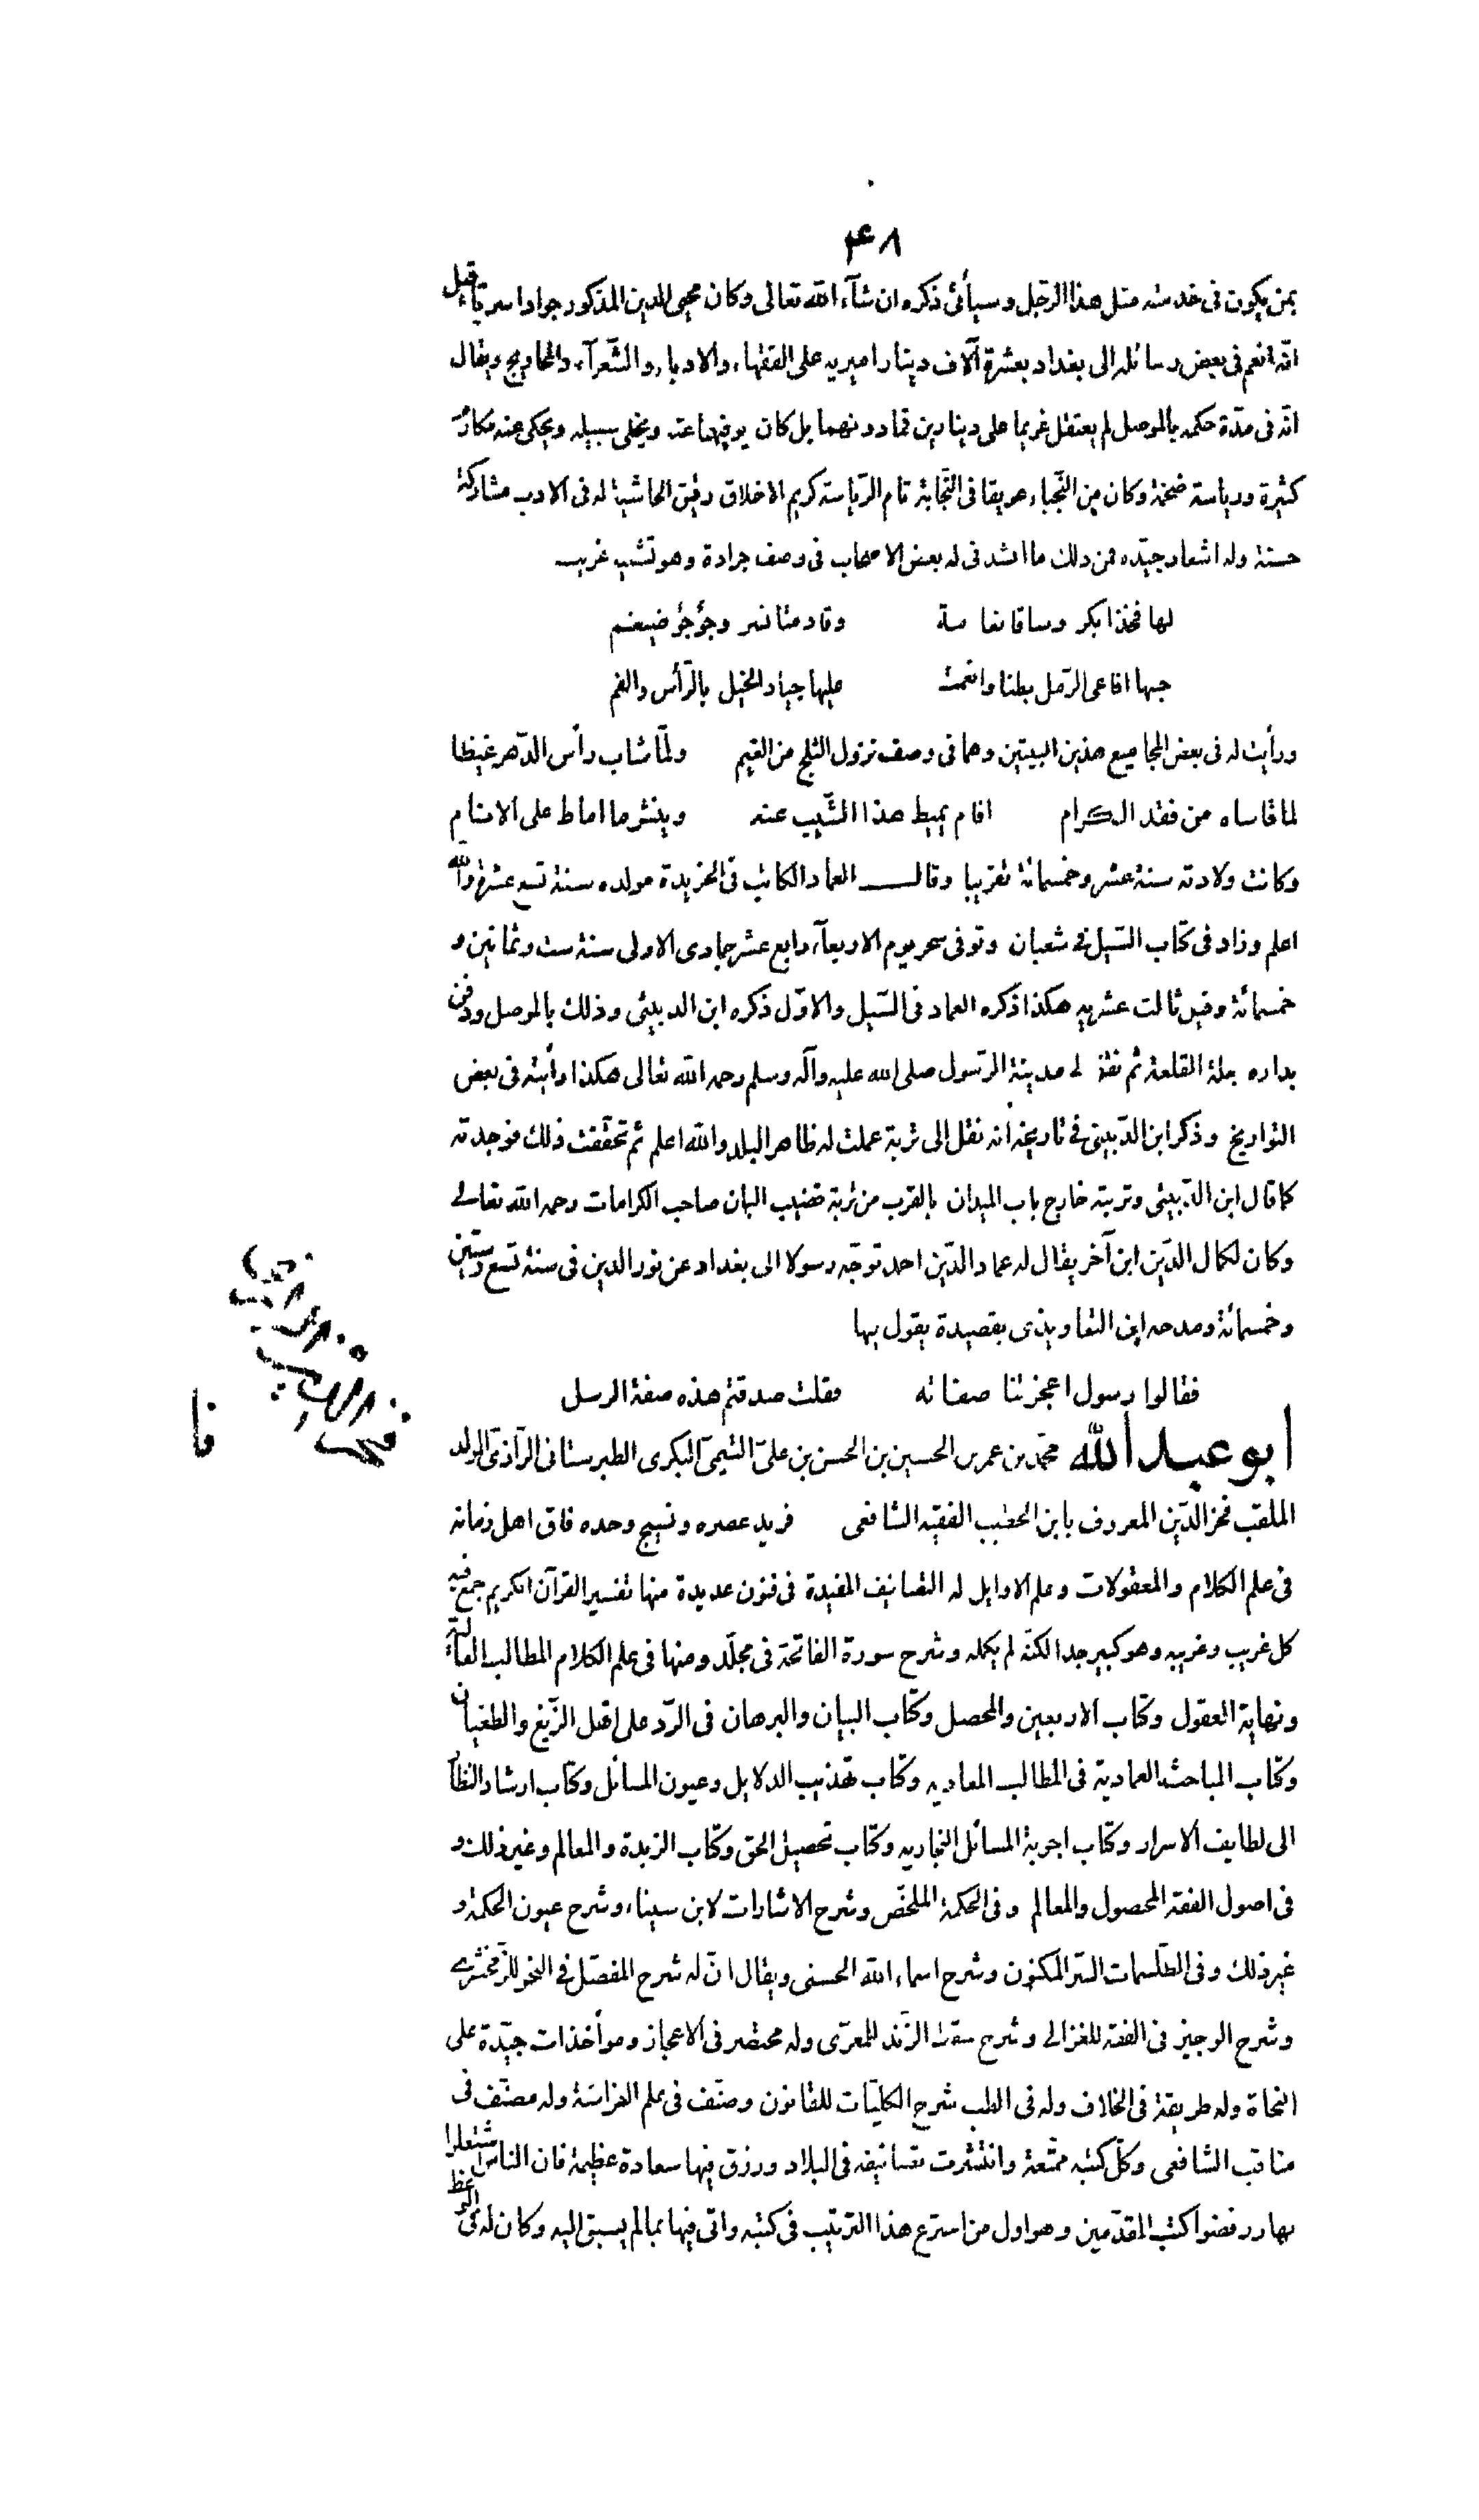 ٣٤٨
بمن يكون فى خدمته مثل هذا الرّجل وسيأتى ذكره ان شآء الله تعالى وكان محيى الدين المذكور جوادا سريّا قيل
انّه انعم فى بعض رسائله الى بغداد بعشرة آلاف دينار اميريه على الفقهاء والادباء والشّعرآء والمحاويج ويقال
انّه فى مدّة حكمه بالموصل لم يعتقل غريما على دينارين فما دونهما بل كان يوفيهما عنه ويخلى سبيله ويحكى عنه مكارم
كثيرة ورياسة ضخمة وكان من النّجباء عريقا فى النّجابة تام الرّياسة كريم الاخلاق رقيق الحاشية له فى الادب مشاركة
حسنة وله اشعار جيّده فمن ذلك ما انشدنى له بعض الاصحاب فى وصف جرادة وهو تشبيه غريب
لها فخذا بكر وساقا نعامة وقادمتا نسر وجؤجؤ ضيغم
حبتها افاعى الرّمل بطنا وانعمت عليها جياد الخيل بالرّأس والفم
ورأيت له فى بعض المجاميع هذين البيتين وهما فى وصف نزول الثلج من الغيم ولمّا شاب رأس الدّهر غيظا
لما قاساه من فقد الكرام اقام يميط هذا الشّيب عنه وينثر ما اماط على الانام
وكانت ولادته سنة عشر وخمسمائة تقريبا وقال العماد الكاتب فى الخريدة مولده سنة تسع عشرة والله
اعلم وزاد فى كتاب السّيل فى شعبان وتوفى سحر يوم الاربعآء رابع عشر جمادى الاولى سنة ست وثمانين و
خمسمائة وقيل ثالث عشريه هكذا ذكره العماد فى السّيل والاوّل ذكره ابن الدبيثى وذلك بالموصل ودفن
بداره بمحلة القلعة ثم نقل الى مدينة الرّسول صلى الله عليه وآله وسلم رحمه الله تعالى هكذا رأيته فى بعض
التواريخ وذكر ابن الدّبيثى فى تاريخه انه نقل الى تربة عملت له ظاهر البلد والله اعلم ثم تحقّقت ذلك فوجدته
كما قال ابن الدّبيثى وتربته خارج باب الميدان بالقرب من تربة قضيب البان صاحب الكرامات رحمه الله تعالى
وكان لكمال الدّين ابن آخر يقال له عماد الدّين احمد توجّه رسولا الى بغداد عن نور الدين فى سنة تسع وستّين
وخمسمائة ومدحه ابن التعاويذى بقصيدة يقول بها
فقالوا رسول اعجزتنا صفاته فقلت صدقتم هذه صفة الرسل
أبو عبد الله محمّد بن عمر بن الحسين بن الحسن بن علىّ التيمىّ البكرى الطبرستانى الرّازىّ المولد
الملقب فخر الدّين المعروف بابن الخطيب الفقيه الشافعى فريد عصره ونسيج وحده فاق اهل زمانه
فى علم الكلام والمعقولات وعلم الاوايل له التصانيف المفيدة فى فنون عديدة منها تفسير القرآن الكريم جمع فيه
كل غريب وغريبه وهو كبير جدا لكنّه لم يكمله وشرح سورة الفاتحة فى مجلّد ومنها فى علم الكلام المطالب العالية
ونهاية العقول وكتاب الاربعين والمحصل وكتاب البيان والبرهان فى الرّد على اهل الزّيغ والطغيان
وكتاب المباحث العمادية فى المطالب المعاديه وكتاب تهذيب الدلايل وعيون المسائل وكتاب ارشاد النظّار
الى لطايف الاسرار وكتاب اجوبة المسائل النجاريه وكتاب تحصيل الحق وكتاب الزبدة والمعالم وغير ذلك و
فى اصول الفقه المحصول والمعالم وفى الحكمة الملخّص وشرح الاشارات لابن سيناء وشرح عيون الحكمة و
غير ذلك وفى الطّلسمات السّر المكنون وشرح اسماء الله الحسنى ويقال انّ له شرح المفصّل فى النحو للزّمخشرى
وشرح الوجيز فى الفقه للغزالى وشرح سقط الزّند للمعرّى وله مختصر فى الاعجاز ومواخذات جيّدة على
النحاة وله طريقة فى الخلاف وله فى الطب شرح الكليّات للقانون وصنّف فى علم الفراسة وله مصنّف فى
مناقب الشافعى وكلّ كتبه ممتّعة وانتشرت تصانيفه فى البلاد ورزق فيها سعادة عظيمة فان الناس اشتغلوا
بها ورفضوا كتب المقدّمين وهو اول من اخترع هذا الترتيب فى كتبه واتى فيها بما لم يسبق اليه وكان له فى الوعظ